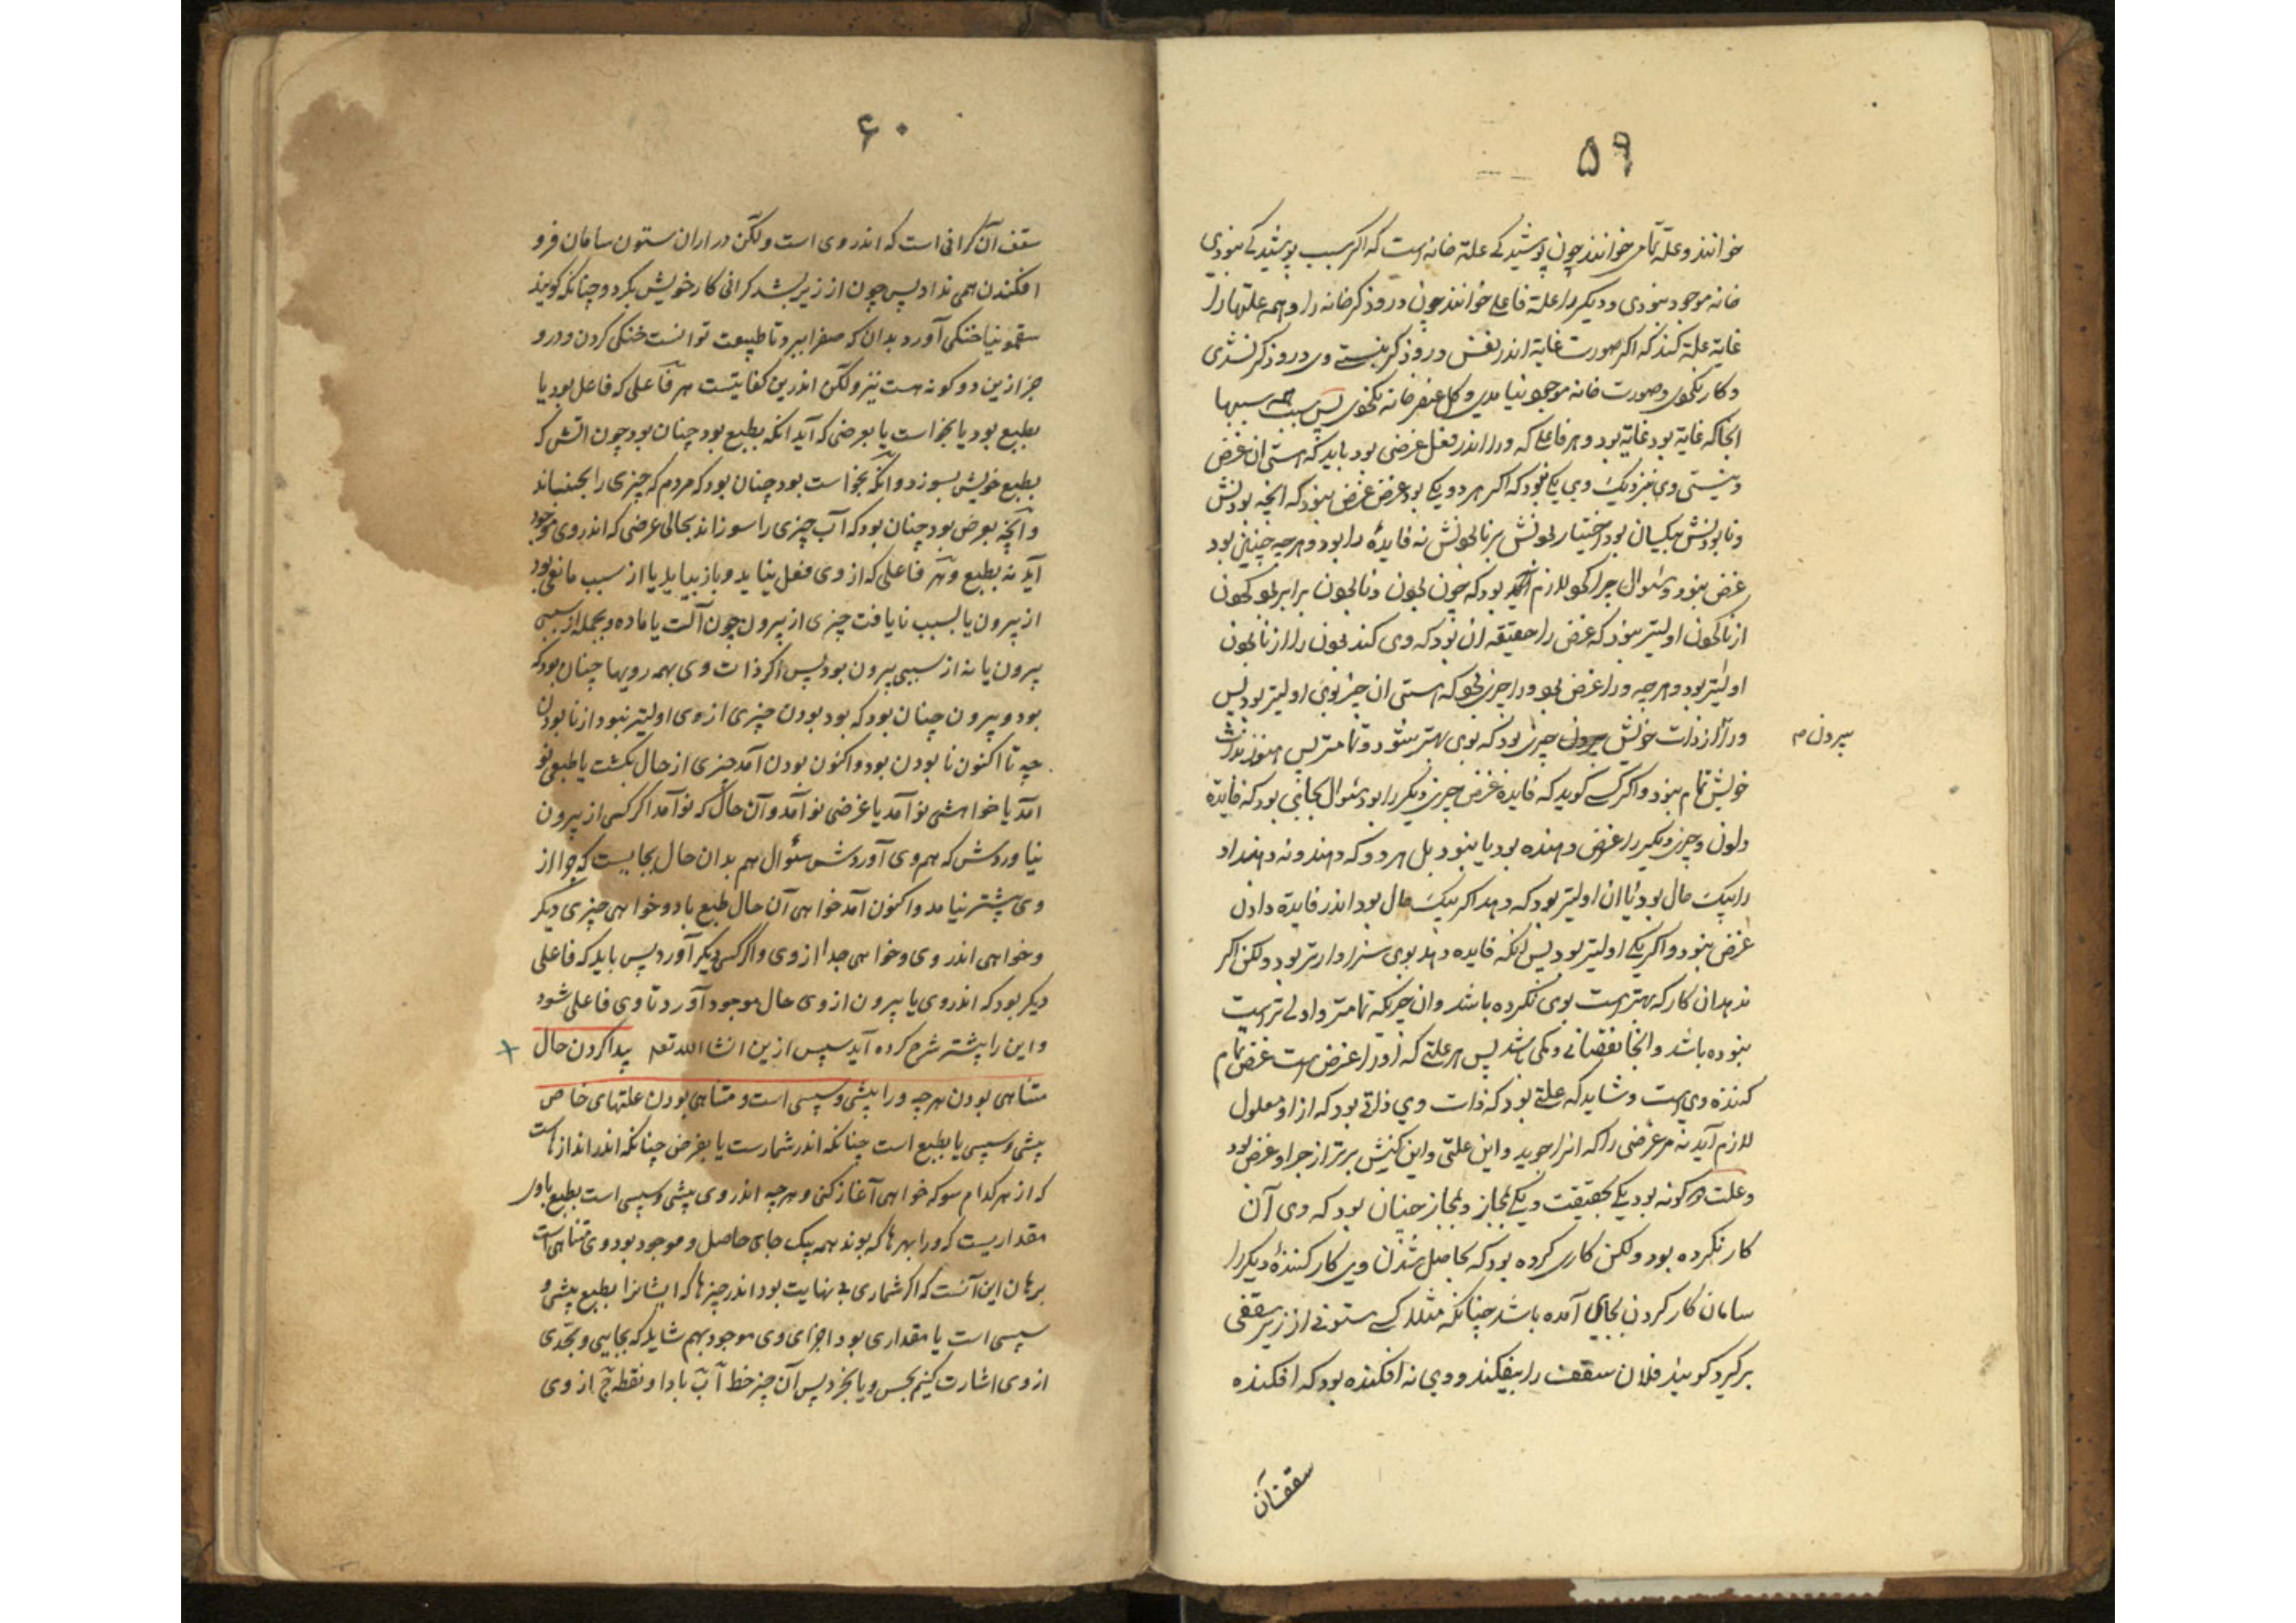 ۵۹
خوانند و علة تمامی خوانند چون پوشیدگی علة خانه است که اگر سبب پوشیدگی نبودی
خانه موجود نبودی و دیگر را علة فاعلی خوانند چون درودگر خانه را و همه علتها را
غایة علة کند که اگر صورت غایة اندر نفس درودگر نیستی وی درودگر نشدی
و کار نکردی و صورت خانه موجود نیامدی و گل عنصر خانه نگشتی پس سبب همه سببها
انجا که غایة بود غایة بود و هر فاعلی که ورا اندر فعل غرضی بود باید که هستی ان غرض
و نیستی وی بنزدیک وی یکی نبود که اگر هر دو یکی بود غرض غرض نبود که انچه بودنش
و نابودنش یکسان بود اختیار بودنش بر نابودنش نه فایدهٔ را بود و هرچه چنین بود
غرض نبود و سئوال چرا لازم بود که چون بودن و نابودن برابر بود بودن
از نابودن اولیتر نبود که غرض را حقیقه ان بود که وی کند بودن را از نابودن
اولیتر بود و هرچه ورا غرض بود ورا چیزی بود که هستی ان چیز بوی اولیتر بود پس
ورا از ذات خویش بیرون چیزی بود که بوی بهتر شود و تمامتر پس هنوز بذات
بیرون صح
خویش تمام نبود و اگر کسی گوید که فایده غرض چیزی دیگر را بود سئوال بجایی بود که فایدة
دادن چیز دیگر را غرض دهنده بود یا نبود بل هر دو که دهد و نه دهد او
را بیک حال بود یا ان اولیتر بود که دهد اگر بیک حال بود اندر فایدة دادن
غرض نبود و اگر یکی اولیتر بود پس انکه فایده دهد بوی سزاوارتر بود ولکن اگر
ندهد ان کار که بهتر است بوی نکرده باشد وان چیز که تمامتر و اولی تر است
نبوده باشد و انجا نقصانی و کمی باشد پس هر علتی که او را غرض است غرض تمام
کننده وی است و شاید که علتی بود که ذات وی ذاتی بود که از او معلول
لازم آید نه مر غرضی را که انرا جوید و این علتی و این کنش برتر از جز او غرض بود
و علت دو گونه بود یکی بحقیقت و یکی بمجاز و بمجاز چنان بود که وی آن
کار نکرده بود ولکن کاری کرده بود که بحاصل شدن وی کار کنندهٔ دیگر را
سامان کار کردن بجای آمده باشد چنانکه مثلا کسی ستونی از زیر سقفی
برگیرد گویند فلان سقف را بیفکند و وی نه افکنده بود که افکنده
سقف آن
۶۰
سقف آن گرانی است که اندر وی است ولکن در اران ستون سامان فرو
افکندن همی نداد پس چون از زیر بشد گرانی کار خویش بکرد و چنانکه گویند
سقمونیا خنکی آورد بدان که صفرا ببرد تا طبیعت توانست خنکی کردن و درو
جز ازین دو گونه هست نیز ولکن اندرین کفایتست هر فاعلی که فاعل بود یا
بطبع بود یا بخواست یا بعرضی که آید انکه بطبع بود چنان بود چون اتش که
بطبع خویش بسوزد و انکه بخواست بود چنان بود که مردم که چیزی را بجنباند
و آنچه بعرض بود چنان بود که آب چیزی را سوزاند بحالی عرضی که اندر وی موجود
آید نه بطبع و هر فاعلی که از وی فعل نیاید و باز بیاید یا از سبب مانعی بود
از بیرون یا بسبب نایافت چیزی از بیرون چون آلت یا ماده و بجمله از سببی
بیرون یا نه از سببی بیرون بود پس اگر ذات وی بهمه رویها چنان بود که
بود و بیرون چنان بود که بود بودن چیزی از وی اولیتر نبود از نابودن
چه تا اکنون نابودن بود و اکنون بودن آمد چیزی از حال بگشت یا طبعی نو
امد یا خواهشی نو آمد یا غرضی نو آمد و آن حال که نو آمد اگر کسی از بیرون
نیاوردش که هم وی آوردش سئوال هم بدان حال بجایست که چرا از
وی پیشتر نیامد و اکنون آمد خواهی آن حال طبع باد و خواهی چیزی دیگر
و خواهی اندر وی و خواهی جدا از وی و اگر کسی دیگر آورد پس باید که فاعلی
دیگر بود که اندر وی یا بیرون از وی حال موجود آورد تا وی فاعلی شود
و این را پیشتر شرح کرده آید سپس ازین انشا الله تعه پیدا کردن حال
متناهی بودن هرچه ورا پیشی و سپسی است و متناهی بودن علتهای خاص
پیشی و سپسی یا بطبع است چنانکه اندر شمارست یا بفرض چنانکه اندر اندازهاست
که از هر کدام سو که خواهی آغاز کنی و هرچه اندر وی پیشی و سپسی است بطبع یا ور
مقداریست که ورا بهرها که بوند همه بیک جای حاصل و موجود بود وی متناهی است
برهان این آنست که اگر شماری بی نهایت بود اندر چیزها که ایشانرا بطبع پیشی و
سپسی است یا مقداری بود اجزای وی موجود بهم شاید که بجایی و بحدی
از وی اشارت کنیم بحس و یا بخرد پس آن چیز خط آ ب بادا و نقطه ج از وی